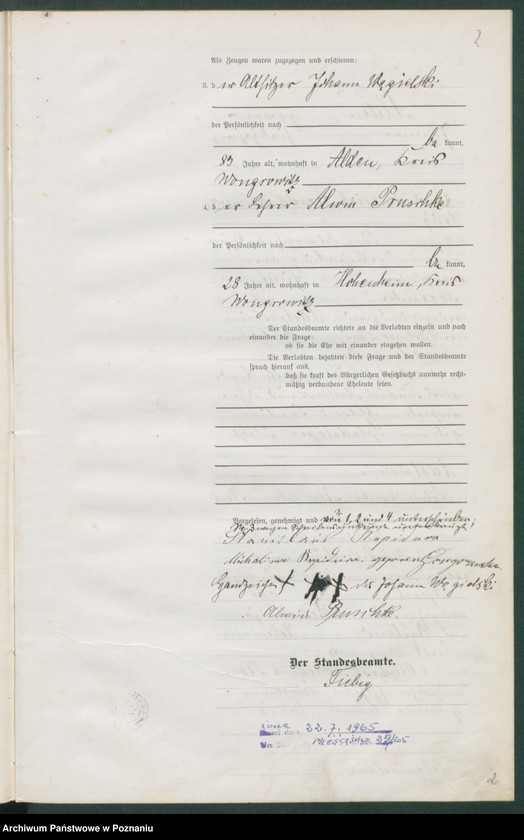 2
Als Zeugen waren zugezogen und erschienen:
der Altsitzer Johann Węgielski
der Persönlichkeit nach
be kannt,
83 Jahre alt, wohnhaft in Alden, Kreis
Wongrowitz
der Lehrer Alwin Pruschke
der Persönlichkeit nach
be kannt,
28 Jahre alt, wohnhaft in Hohenheim, Kreis
Wongrowitz
Der Standesbeamte richtete an die Verlobten einzeln und nach
einander die Frage:
ob sie die Ehe mit einander eingehen wollen.
Die Verlobten bejahten diese Frage und der Standesbeamte
sprach hierauf aus,
daß sie kraft des Bürgerlichen Gesetzbuchs nunmehr recht-
mäßig verbundene Eheleute seien.
Vorgelesen, genehmigt und von 1, 2 und 4 unterschrieben,
Stanislaus
geborene
Handzeichen des Johann Węgielski
Alwin Pruschke.
Der Standesbeamte.
Tiebig
22.7.1965
2
Archiwum Państwowe w Poznaniu